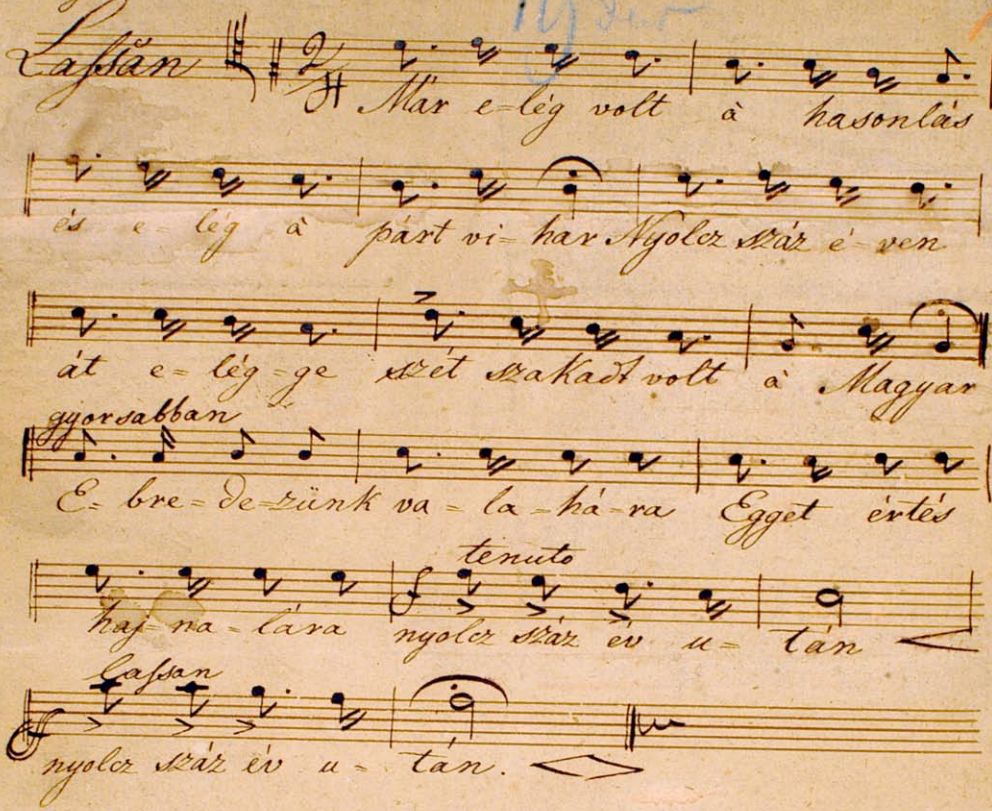 Lassan
2
4
Már e-lég volt à hasonlás
és e-lég à párt vi-har Nyolcz száz é-ven
át e-lég-ge szét szakadt volt à Magyar
gyorsabban
E-bre-de-zünk va-la-há-ra Egget értés
tenuto
f
haj-na-lára nyolcz száz év u-tán
Lassan
f
nyolcz száz év u-tán.